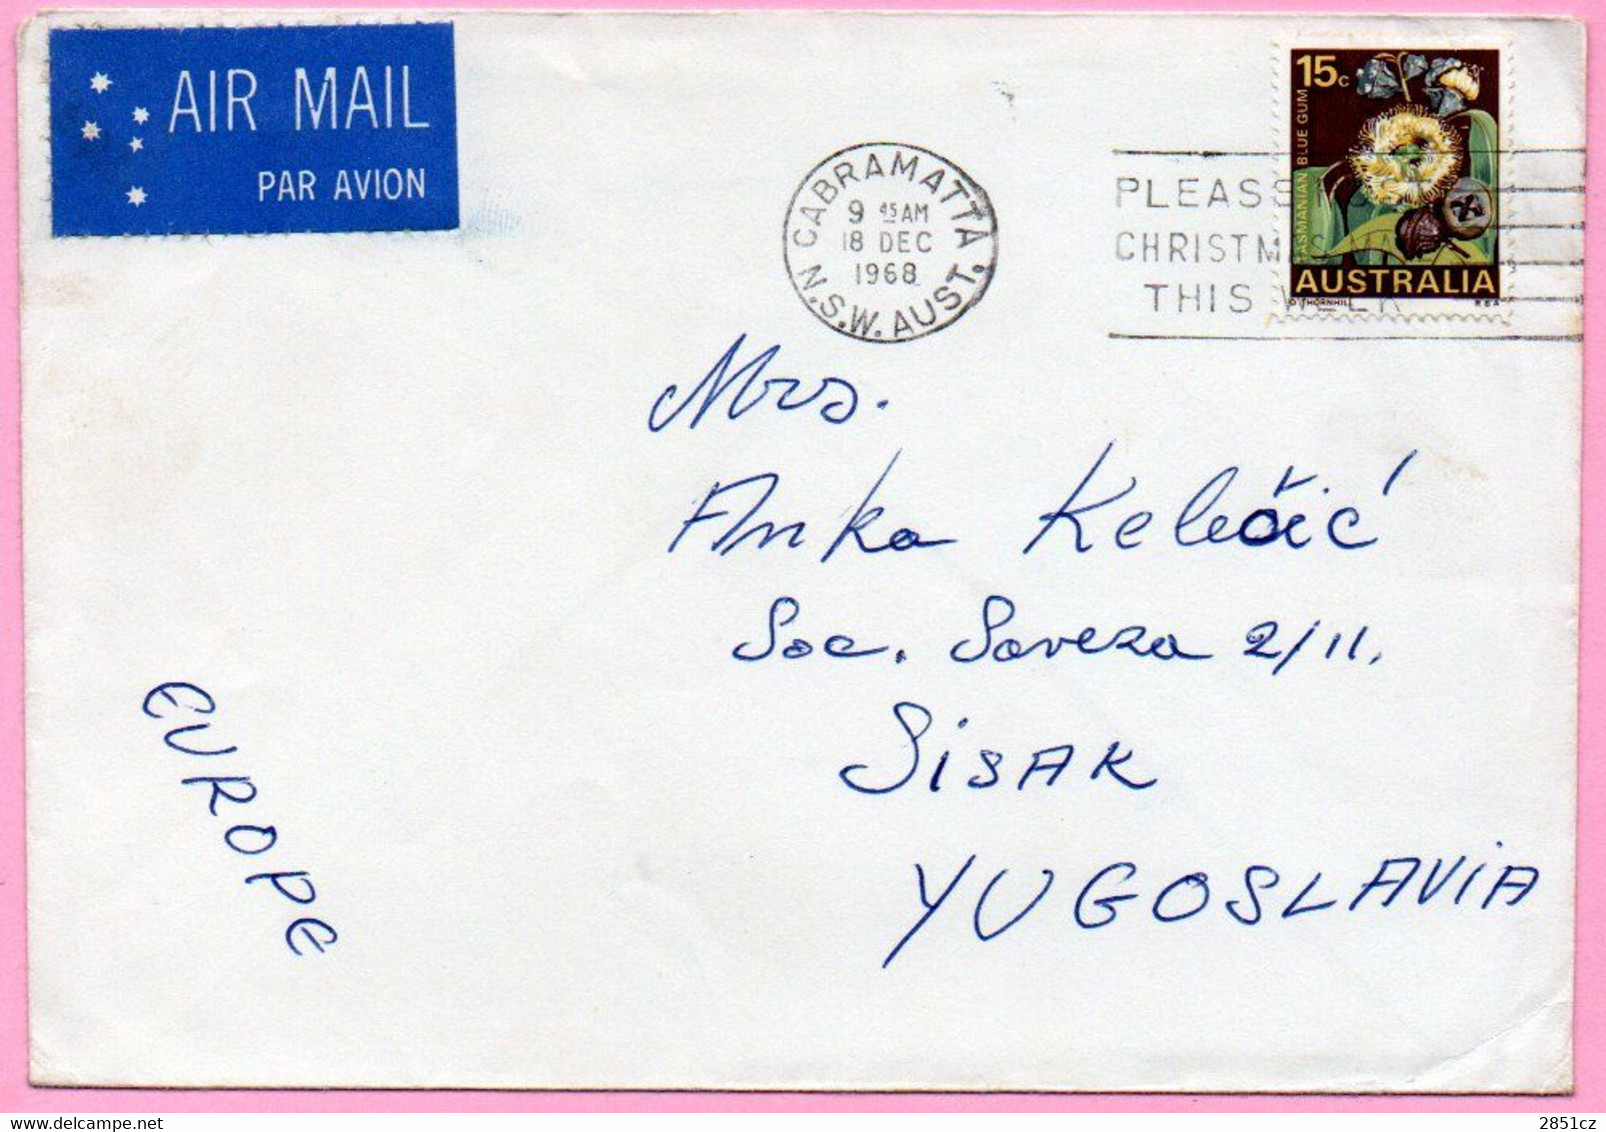 AIR MAIL
PAR AVION
CABRAMATTA
9 45 AM
18 DEC
1968
N.S.W. AUST.
PLEASE POST
CHRISTMAS MAIL
THIS WEEK
15c
TASMANIAN BLUE GUM
AUSTRALIA
D THORNHILL
RBA
Mrs.
Anka Kelečić
Soc. Saveza 2/II.
SISAK
YUGOSLAVIA
EUROPE
2851cz